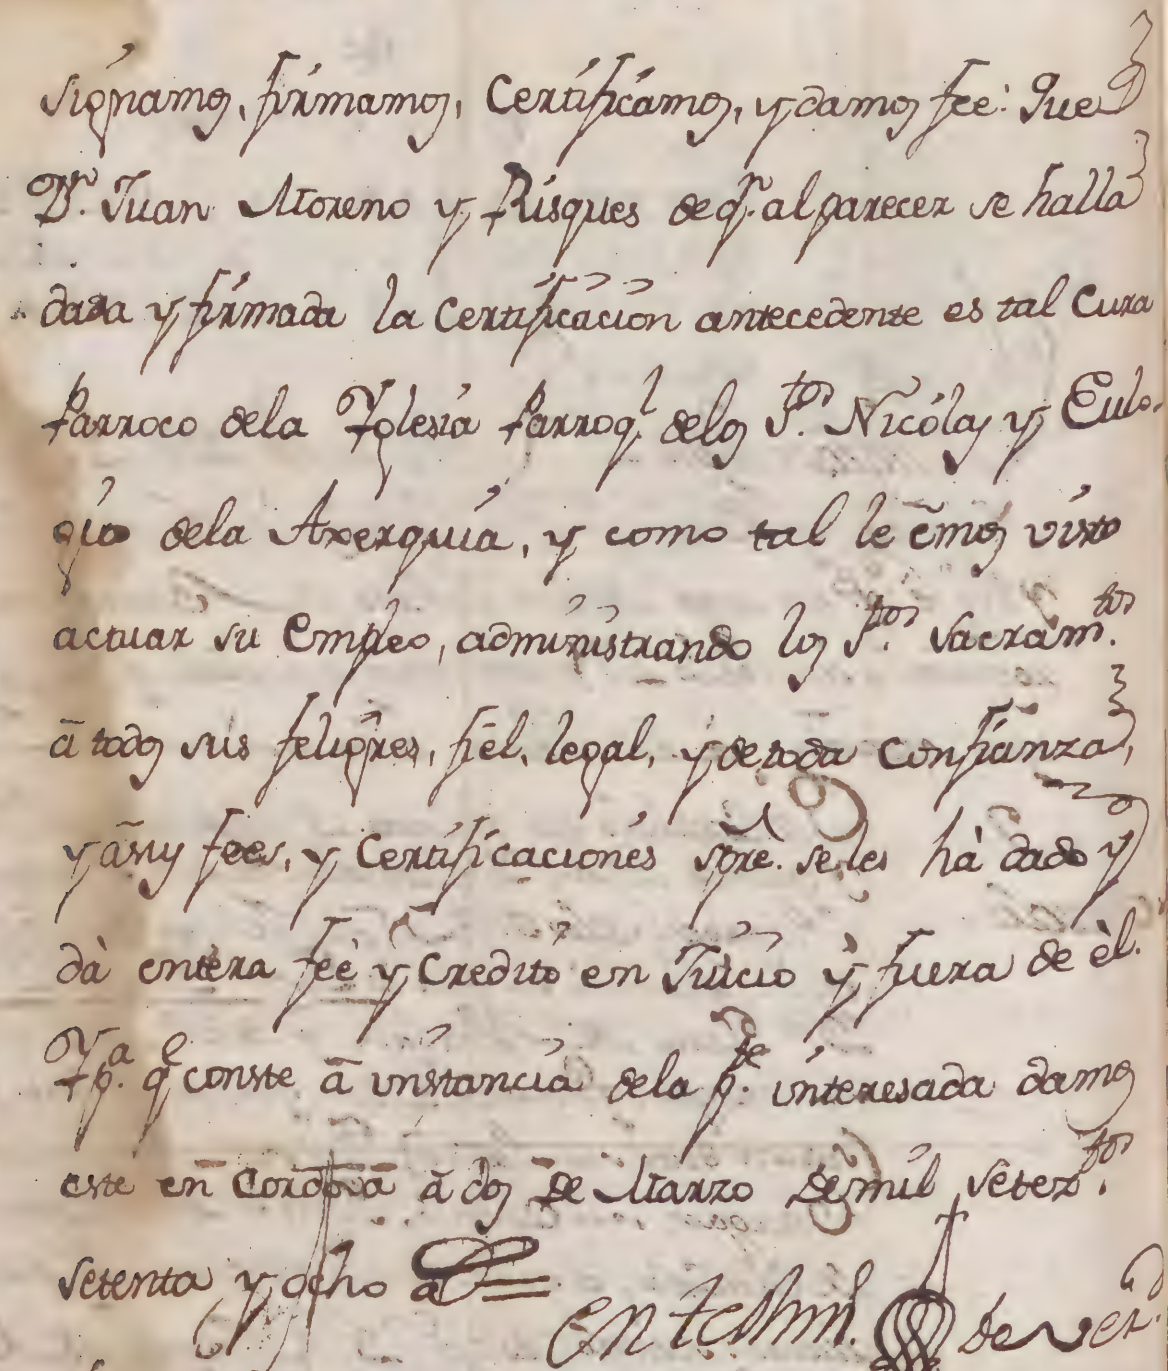 signamos, firmamos, Certificamos, y damos fee: Que
Dn. Juan Moreno y Risques de qn. al parecer se halla
dada y firmada la Certificacion antecedente es tal Cura
Parroco dela Yglesia Parroql. delos Stos. Nicolas y Eulo-
gio dela Axerquia, y como tal le emos visto
actuar su Empleo, administrando los Stos. Sacramtos.
à todos sus feligres, fiel, legal, y de toda confianza,
y à sus fees, y Certificaciones spre. se les hà dado y
dà entera feè y Credito en Juicio y fuera de èl.
Y pa. qe conste à instancia dela pte. interesada damos
este en Cordova à dos de Marzo de mil Seteztos.
setenta y ocho a
en testim. de verd.